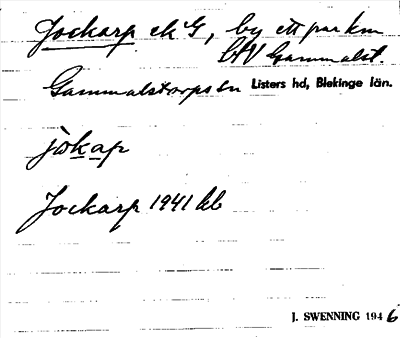 Jockarp ek G, by ett par km
VNV Gammalst.
Gammalstorps sn Listers hd, Blekinge län.
jokap
Jockarp 1941 kb
J. SWENNING 1946